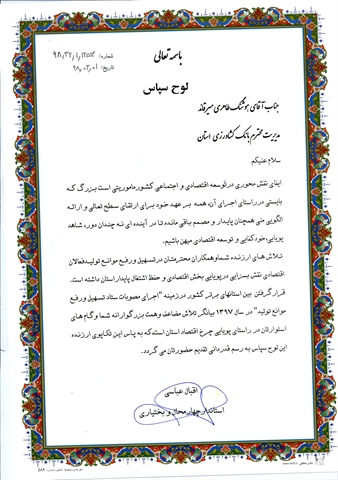 باسمه تعالی
شماره: ۹۸،۳۲/۱،۱۲۵۱۴
تاریخ: ۹۸،۰۳،۰۱
لوح سپاس
جناب آقای هوشنگ طاهری میرقائد
مدیریت محترم بانک کشاورزی استان
سلام علیکم
ایفای نقش محوری درتوسعه اقتصادی و اجتماعی کشورماموریتی است بزرگ که
بایستی درراستای اجرای آن، همه بر عهد خود برای ارتقای سطح تعالی و ارائه
الگویی ملی همچنان پایدار و مصمم باقی مانده تا در آینده ای نه چندان دور، شاهد
پویایی، خودکفایی و توسعه اقتصادی میهن باشیم.
تلاش های ارزنده شماوهمکاران محترمتان درتسهیل ورفع موانع تولیدفعالان
اقتصادی نقش بسزایی درپویایی بخش اقتصادی و حفظ اشتغال پایداراستان داشته است.
قرارگرفتن بین استانهای برتر کشور درزمینه "اجرای مصوبات ستاد تسهیل ورفع
موانع تولید" در سال ۱۳۹۷ بیانگر تلاش مضاعف وهمت بزرگوارانه شما وگام های
استوارتان در راستای پویایی چرخ اقتصاد استان است،که به پاس این تکاپوی ارزنده
این لوح سپاس به رسم قدردانی تقدیم حضورتان می گردد.
اقبال عباسی
استاندار چهارمحال و بختیاری